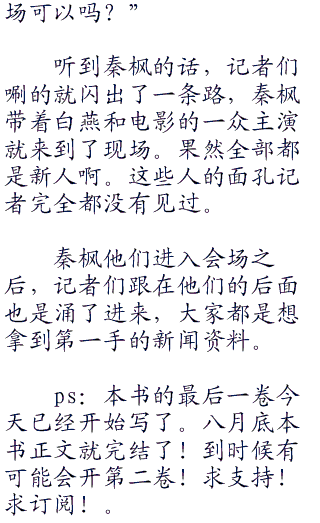 场可以吗？”
听到秦枫的话，记者们
唰的就闪出了一条路，秦枫
带着白燕和电影的一众主演
就来到了现场。果然全部都
是新人啊。这些人的面孔记
者完全都没有见过。
秦枫他们进入会场之
后，记者们跟在他们的后面
也是涌了进来，大家都是想
拿到第一手的新闻资料。
ps：本书的最后一卷今
天已经开始写了。八月底本
书正文就完结了！到时候有
可能会开第二卷！求支持！
求订阅！。